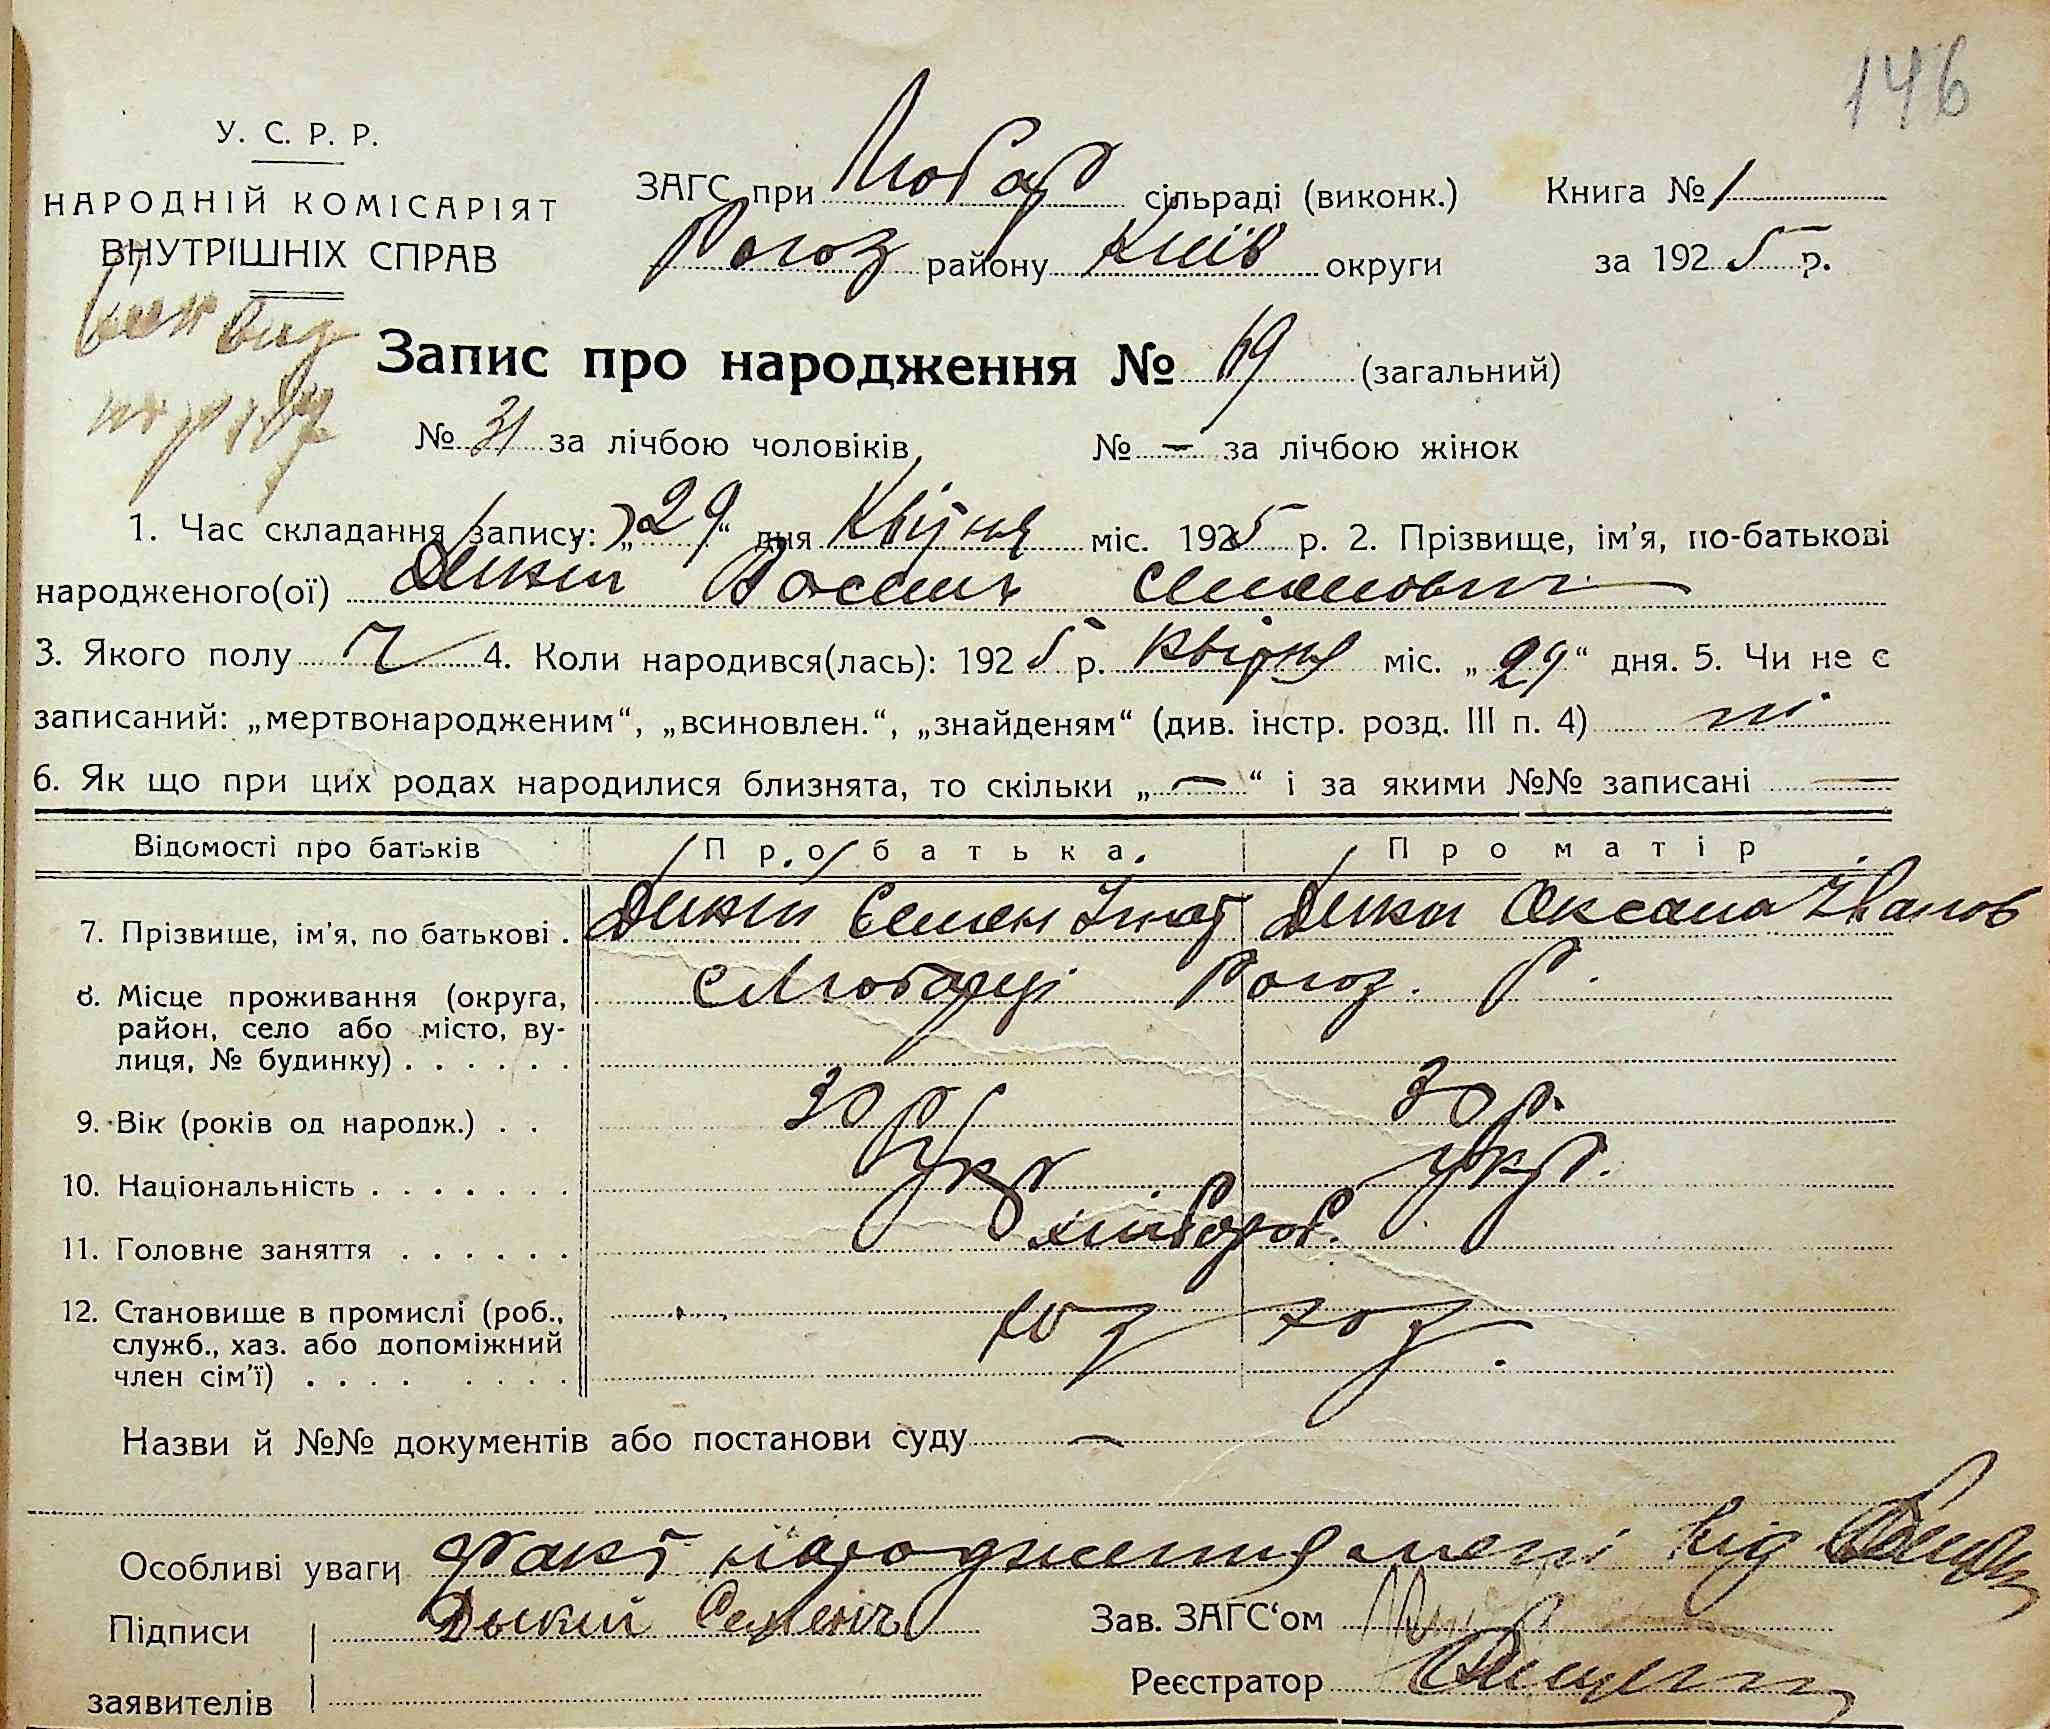 146
У. С. Р. Р.
НАРОДНІЙ КОМІСАРІЯТ
ВНУТРІШНІХ СПРАВ
ЗАГС при Любар сільраді (виконк.) Книга № 1
Рогоз району Київ округи за 1925 р.
Запис про народження № 69 (загальний)
№ 31 за лічбою чоловіків № — за лічбою жінок
1. Час складання запису: „29“ дня Квітня міс. 1925 р. 2. Прізвище, ім'я, по-батькові
народженого(ої) Дикий Василь Семенович
3. Якого полу ч 4. Коли народився(лась): 1925 р. Квітня міс. „29“ дня. 5. Чи не є
записаний: „мертвонародженим“, „всиновлен.“, „знайденям“ (див. інстр. розд. III п. 4) ні
6. Як що при цих родах народилися близнята, то скільки „—“ і за якими №№ записані —
Відомості про батьків Про батька Про матір
7. Прізвище, ім'я, по батькові . Дикий Семен Ігнат Дика Оксана Іванов
8. Місце проживання (округа, с Любарці Рогоз. Р.
район, село або місто, ву-
лиця, № будинку) . . . . . .
9. Вік (років од народж.) . . 30 р 30 р.
10. Національність . . . . . . . Укр Укр.
11. Головне заняття . . . . . . хлібороб.
12. Становище в промислі (роб., хоз хоз.
служб., хаз. або допоміжний
член сім'ї) . . . . . . . .
Назви й №№ документів або постанови суду —
Особливі уваги факт народження від
Підписи Дыкий Семенъ Зав. ЗАГС'ом
Реєстратор
заявителів